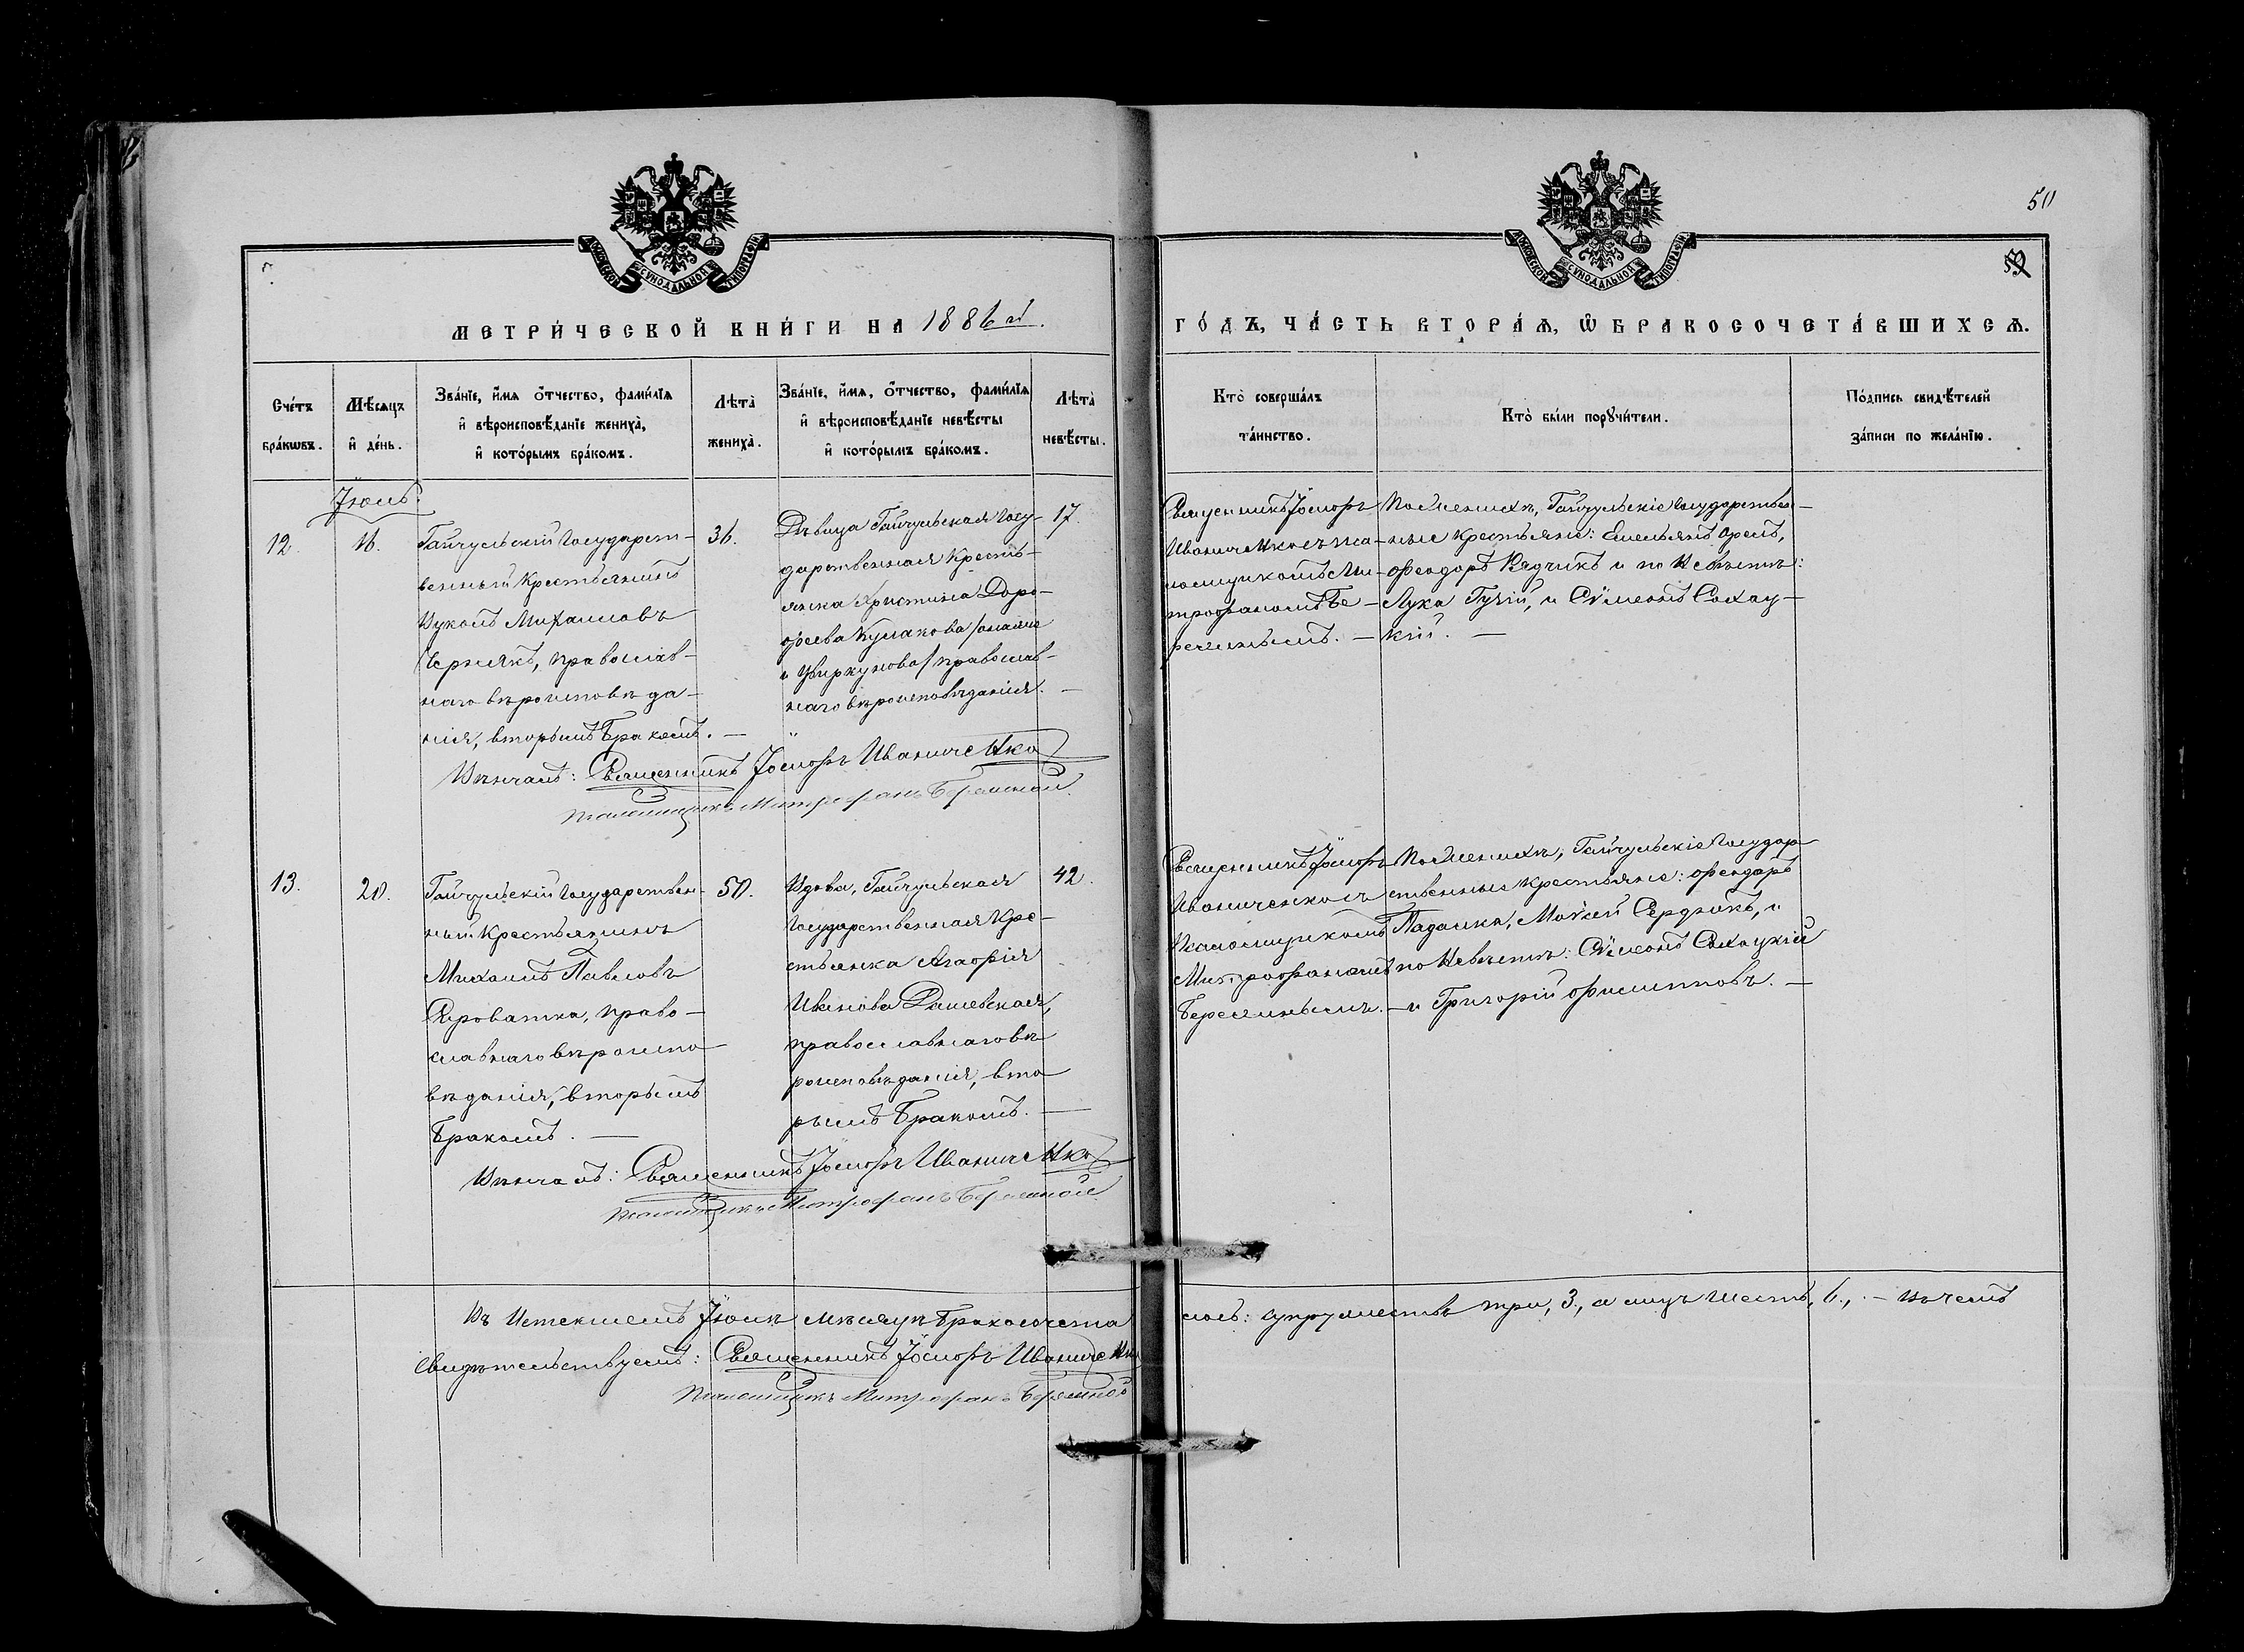 МОСКОВСКОЙ СУНОДАЛЬНОЙ ТИПОГРАФІИ
МОСКОВСКОЙ СУНОДАЛЬНОЙ ТИПОГРАФІИ
50
МЕТРИ́ЧЕСКОЙ КНИ́ГИ НА 1886й.
ГО́ДЪ, ЧА́СТЬ ВТОРА́Ѧ, Ѡ БРАКОСОЧЕТА́ВШИХСѦ.
Сче́тъ
бра́кѡвъ.
Мѣ́сѧцъ
и҆ де́нь.
Зва́нїе, и҆́мѧ ѻ҆́тчество, фами́лїѧ
и҆ вѣроисповѣ́данїе жениха̀,
и҆ кото́рымъ бра́комъ.
Лѣта̀
жениха̀.
Зва́нїе, и҆́мѧ, ѻ҆́тчество, фами́лїѧ
и҆ вѣроисповѣ́данїе невѣ́сты
и҆ кото́рымъ бра́комъ.
Лѣта̀
невѣ́сты.
Кто̀ соверша́лъ
та́инство.
Кто̀ бы́ли порꙋчи́тели.
По́дпись свидѣ́телей
за́писи по жела́нїю.
Іюль.
12.
16.
Гайчульскій Государст-
венный Крестьянинъ
Вуколъ Михаиловъ
Чернякъ, православ-
наго вѣроисповѣда-
нія, вторымъ бракомъ. —
36.
Дѣвица Гайчульская Госу-
дарственная Кресть-
янка Христина Доро-
феева Кулакова /она же
и Цвиркунова/ православ-
наго вѣроисповѣданія. —
17.
Священникъ Іосифъ
Иваниченко съ пса-
ломщикомъ Ми-
трофаномъ Бе-
режнымъ. —
По Женихѣ, Гайчульскіе Государствен-
ные Крестьяне: Емельянъ Орелъ,
Феодоръ Вядчикъ и по Невѣстѣ:
Лука Гучій, и Сѵмеонъ Сохац-
кій. —
Вѣнчалъ: Священникъ Іосифъ Иваниченко
Псаломщикъ Митрофанъ Бережной.
13.
20.
Гайчульскій Государствен-
ный Крестьянинъ
Михаилъ Павловъ
Сыроватка, право-
славнаго вѣроиспо-
вѣданія, вторымъ
бракомъ. —
50.
Вдова, Гайчульская
Государственная Кре-
стьянка Агафія
Иванова Дашевская,
православнаго вѣ
роисповѣданія, вто
рымъ бракомъ. —
42.
Священникъ Іосифъ
Иваниченко съ
Псаломщикомъ
Митрофаномъ
Бережнымъ. —
По Женихѣ, Гайчульскіе Государ
ственные Крестьяне: Феодоръ
Падалка, Моѵсей Сердюкъ, и
по Невѣстѣ: Сѵмеонъ Сохацкій
и Григорій Филиповъ. —
Вѣнчалъ: Священникъ Іосифъ Иваниченко
Псаломщикъ Митрофанъ Бережной
Въ Истекшемъ Іюлѣ мѣсяцѣ бракосочета
лось: супружествъ три, 3., а лицъ шесть, 6., — въ чемъ
Свидѣтельствуемъ: Священникъ Іосифъ Иваниченко
Псаломщикъ Митрофанъ Бережной